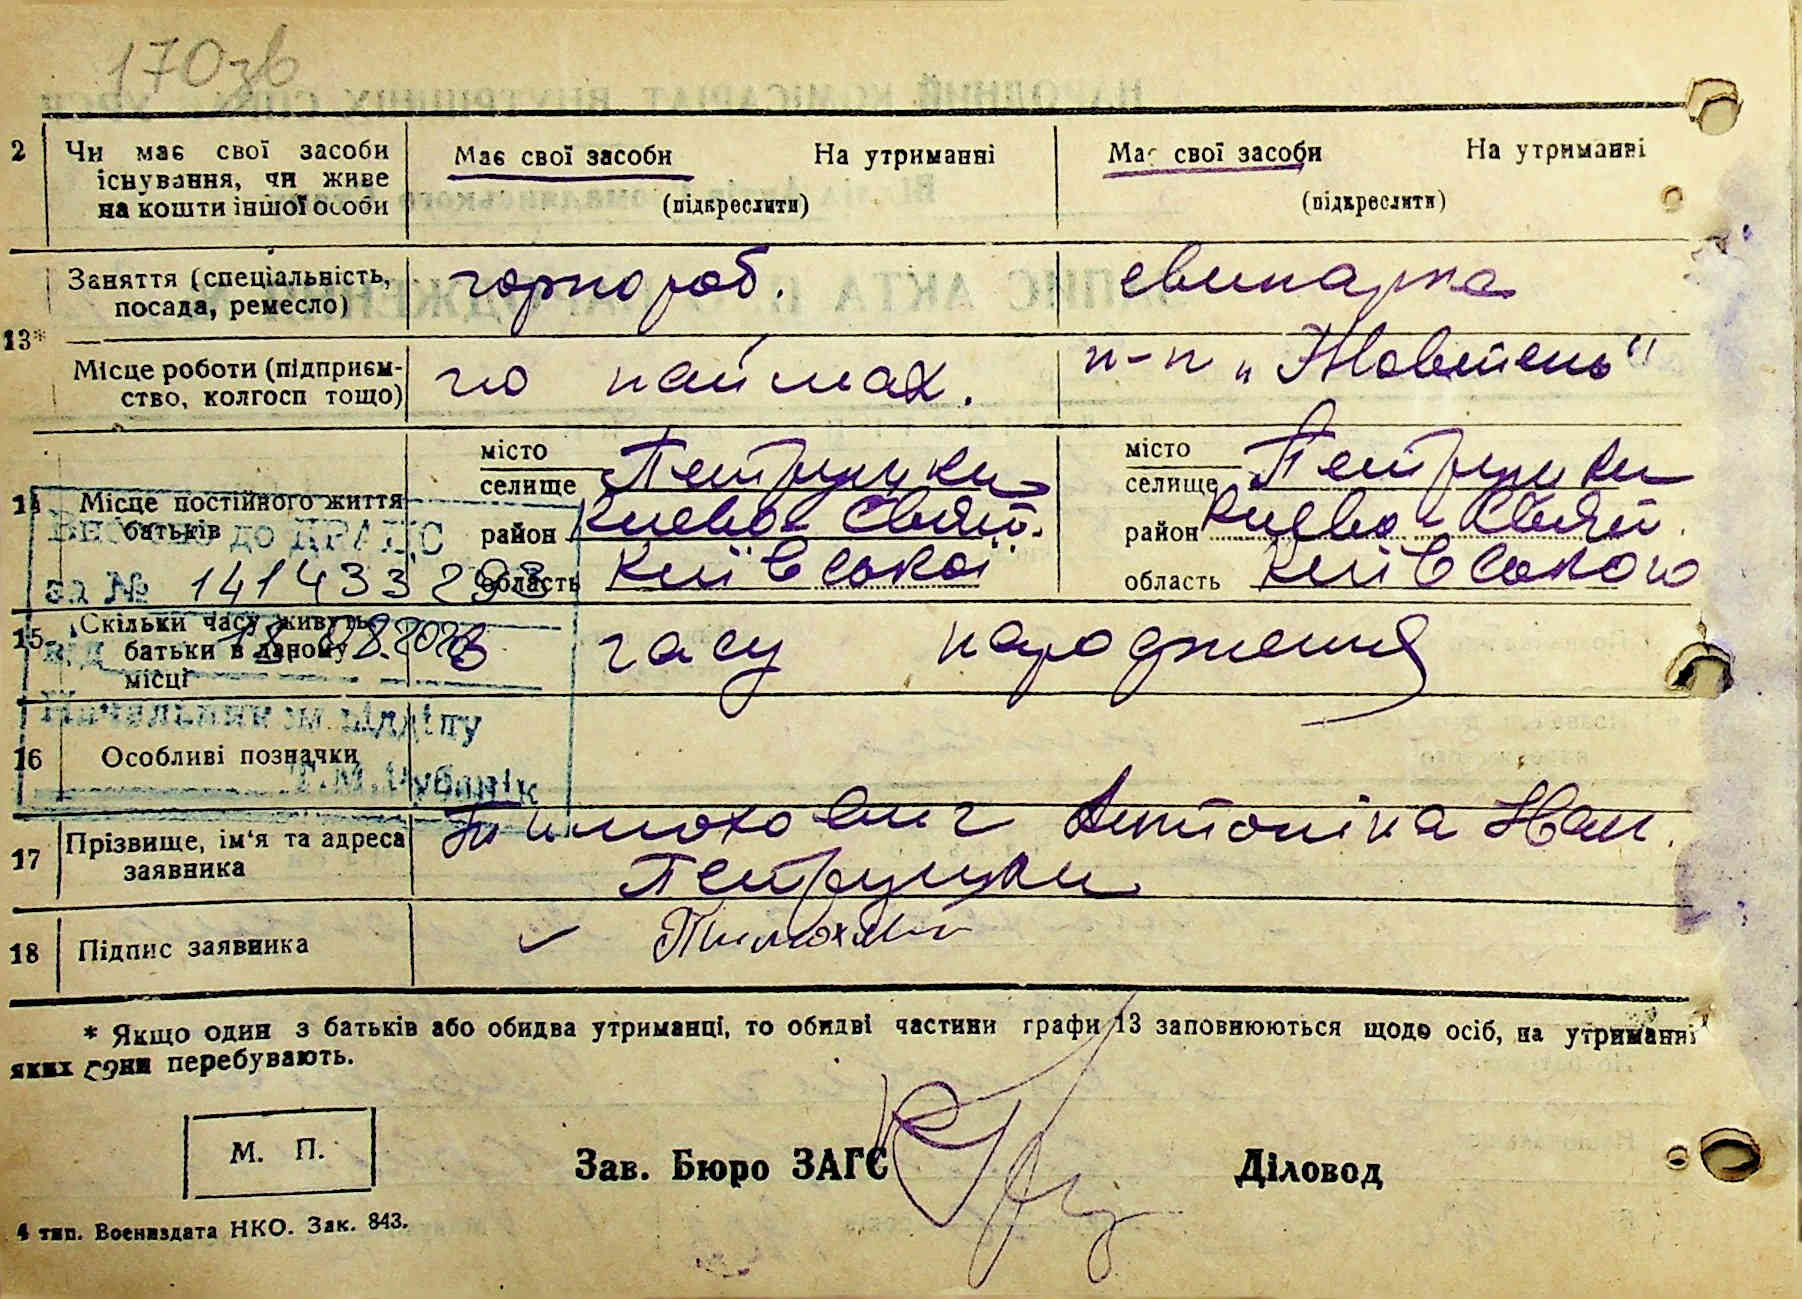 170зв
2 Чи має свої засоби існування, чи живе на кошти іншої особи
Має свої засоби На утриманні
(підкреслити)
Має свої засоби На утриманні
(підкреслити)
13*
Заняття (спеціальність, посада, ремесло)
чорнороб.
свинарка
Місце роботи (підприємство, колгосп тощо)
по наймах.
п-п „Жовтень"
14 Місце постійного життя батьків
місто
селище Петрушки
район Києво-Свят.
область Київської
місто
селище Петрушки
район Києво-Свят.
область Київського
Внесено до ДРАЦС
за № 141433298
від 18.08.2023
Начальник відділу
Т.М.Рубанік
15 Скільки часу живуть батьки в даному місці
З часу народження
16 Особливі позначки
17 Прізвище, ім'я та адреса заявника
Тимохович Антоніна Иван.
Петрушки
18 Підпис заявника
* Якщо один з батьків або обидва утриманці, то обидві частини графи 13 заповнюються щодо осіб, на утриманні
яких вони перебувають.
М. П.
Зав. Бюро ЗАГС
Діловод
4 тип. Воениздата НКО. Зак. 843.